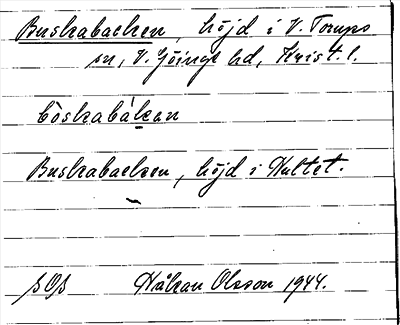 Buskabacken, höjd i V. Torups
sn, V. Göinge hd, Krist. l.
bòskabákan
Buskabacken, höjd i Hultet.
Håkan Olsson 1944.